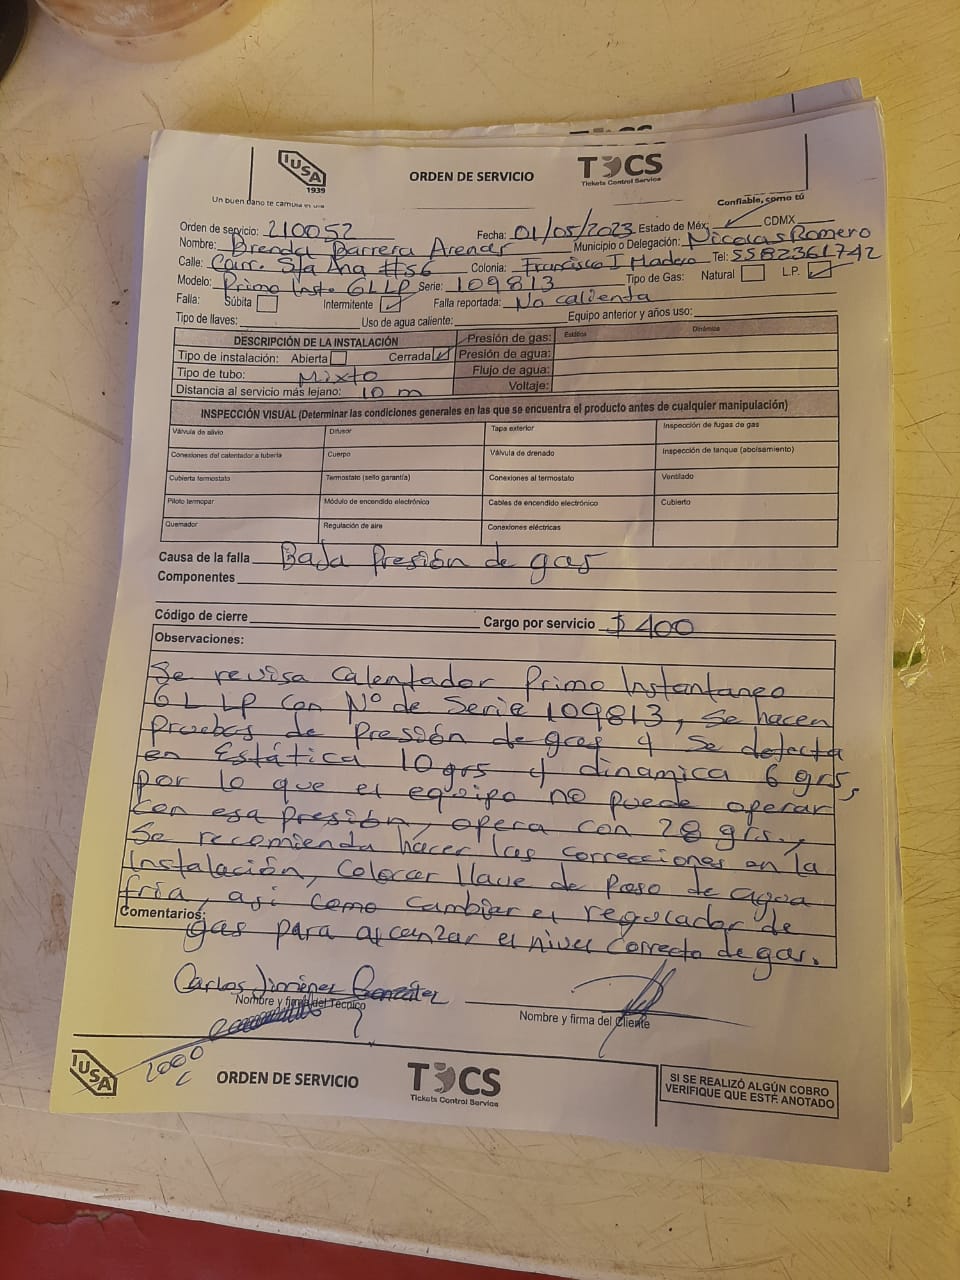 IUSA
1939
Un buen baño te cambia el día
ORDEN DE SERVICIO
TCS
Tickets Control Service
Confiable, como tú
Orden de servicio: 210052 Fecha: 01/05/2023 Estado de Méx: CDMX
Nombre: Brenda Barrera Arenas Municipio o Delegación: Nicolas Romero
Calle: Carr. Sta Ana #56 Colonia: Francisco I Madero Tel: 5582361742
Modelo: Primo Inst. 6L LP Serie: 109813 Tipo de Gas: Natural L.P.
Falla: Súbita Intermitente Falla reportada: No calienta
Tipo de llaves: Uso de agua caliente: Equipo anterior y años uso:
DESCRIPCIÓN DE LA INSTALACIÓN Presión de gas: Estática Dinámica
Tipo de instalación: Abierta Cerrada Presión de agua:
Tipo de tubo: Mixto Flujo de agua:
Distancia al servicio más lejano: 10 m Voltaje:
INSPECCIÓN VISUAL (Determinar las condiciones generales en las que se encuentra el producto antes de cualquier manipulación)
Válvula de alivio Difusor Tapa exterior Inspección de fugas de gas
Conexiones del calentador a tubería Cuerpo Válvula de drenado Inspección de tanque (abolsamiento)
Cubierta termostato Termostato (sello garantía) Conexiones al termostato Ventilado
Piloto termopar Módulo de encendido electrónico Cables de encendido electrónico Cubierto
Quemador Regulación de aire Conexiones eléctricas
Causa de la falla Baja Presión de gas
Componentes
Código de cierre Cargo por servicio $ 400
Observaciones:
Se revisa Calentador Primo Instantaneo
6L LP con Nº de Serie 109813, Se hacen
Pruebas de Presión de gas y Se detecta
en Estática 10 grs y dinamica 6 grs,
por lo que el equipo no puede operar
con esa presión, opera con 28 grs.,
Se recomienda hacer las correcciones en la
Instalación, Colocar llave de Paso de agua
fría, así como cambiar el regulador de
Comentarios:
gas para alcanzar el nivel correcto de gas.
Carlos Jiménez González
Nombre y firma del Técnico
Nombre y firma del Cliente
IUSA
ORDEN DE SERVICIO
TCS
Tickets Control Service
SI SE REALIZÓ ALGÚN COBRO
VERIFIQUE QUE ESTÉ ANOTADO